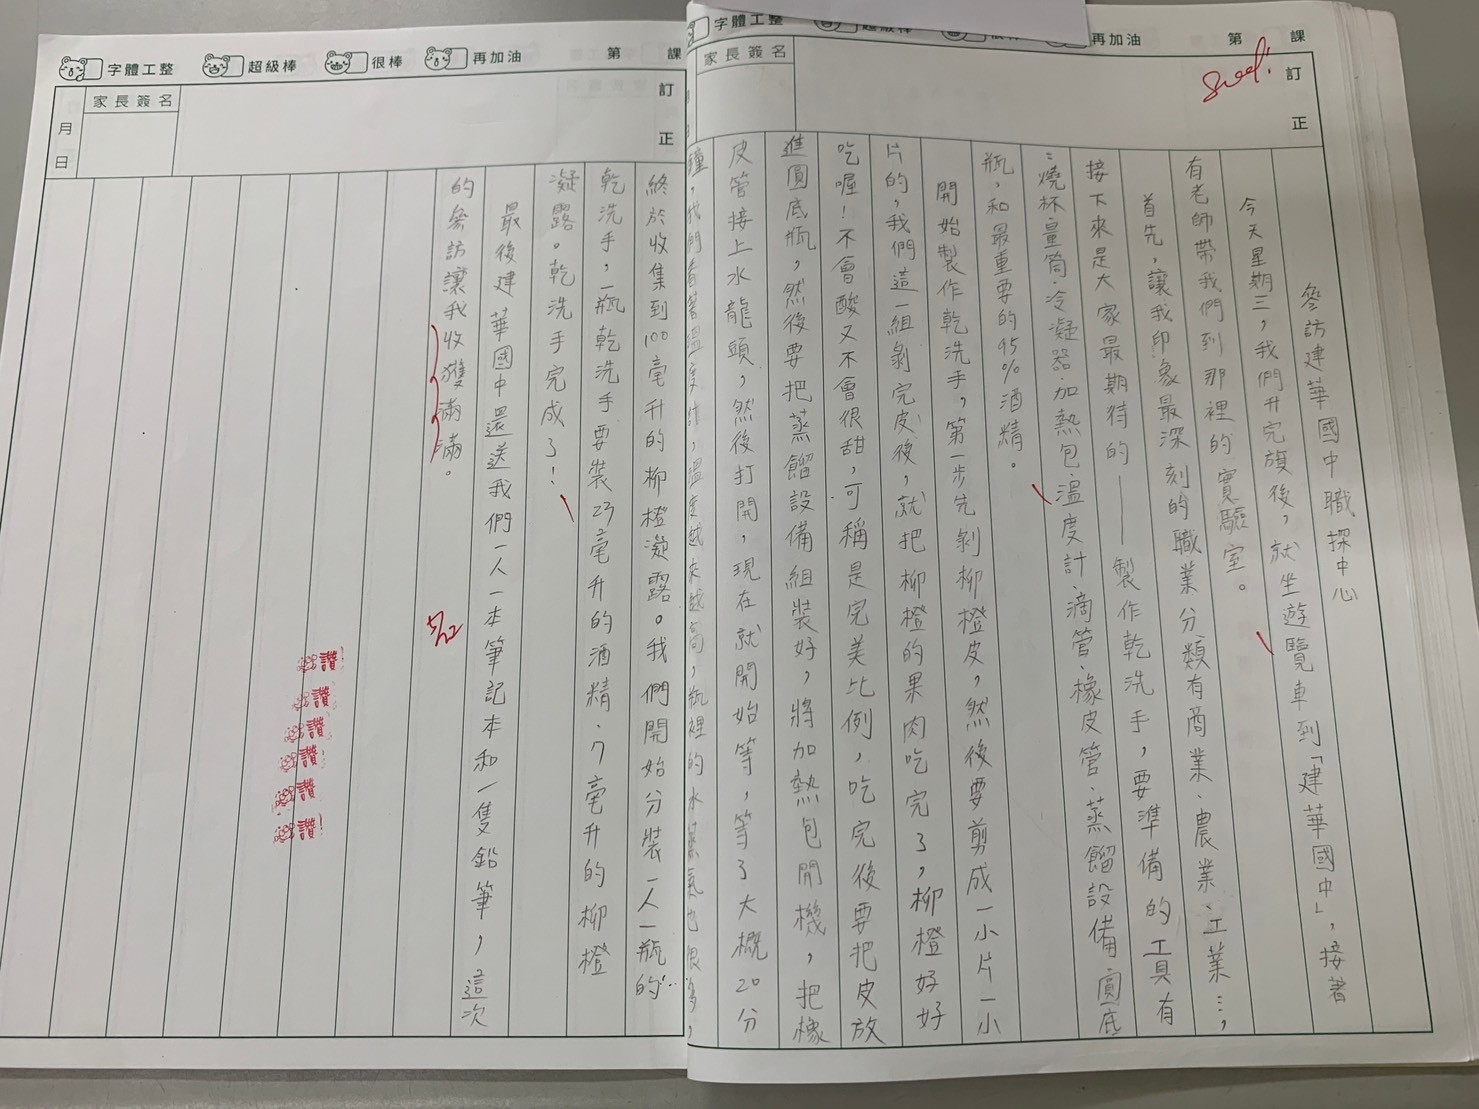 字體工整
超級棒
很棒
再加油
第 課
訂正
家長簽名
Good!
參訪建華國中職探中心
今天星期三，我們升完旗後，就坐遊覽車到「建華國中」，接著
有老師帶我們到那裡的實驗室。
首先，讓我印象最深刻的職業分類有商業、農業、工業…，
接下來是大家最期待的——製作乾洗手，要準備的工具有
：燒杯、量筒、冷凝器、加熱包、溫度計、滴管、橡皮管、蒸餾設備、圓底
瓶，和最重要的95%酒精。
開始製作乾洗手，第一步先剝柳橙皮，然後要剪成一小片一小
片的，我們這一組剝完皮後，就把柳橙的果肉吃完了，柳橙好好
吃喔！不會酸又不會很甜，可稱是完美比例，吃完後要把皮放
進圓底瓶，然後要把蒸餾設備組裝好，將加熱包開機，把橡
皮管接上水龍頭，然後打開，現在就開始等，等了大概20分
鐘，我們看著溫度計，溫度越來越高，瓶裡的水蒸氣也很多，
字體工整
超級棒
很棒
再加油
第 課
訂正
家長簽名
月日
終於收集到100毫升的柳橙凝露。我們開始分裝一人一瓶的
乾洗手，一瓶乾洗手要裝23毫升的酒精、7毫升的柳橙
凝露。乾洗手完成了！
最後建華國中還送我們一人一本筆記本和一隻鉛筆，這次
的參訪讓我收獲滿滿。
5/22
讚！
讚！
讚！
讚！
讚！
讚！